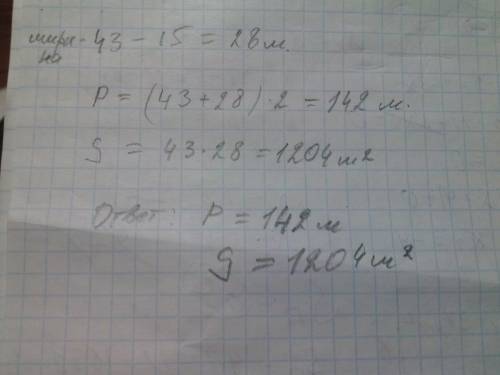 шири- 43 - 15 = 28 м.
на
P = (43 + 28) · 2 = 142 м.
S = 43 · 28 = 1204 м²
Ответ: P = 142 м
S = 1204 м²